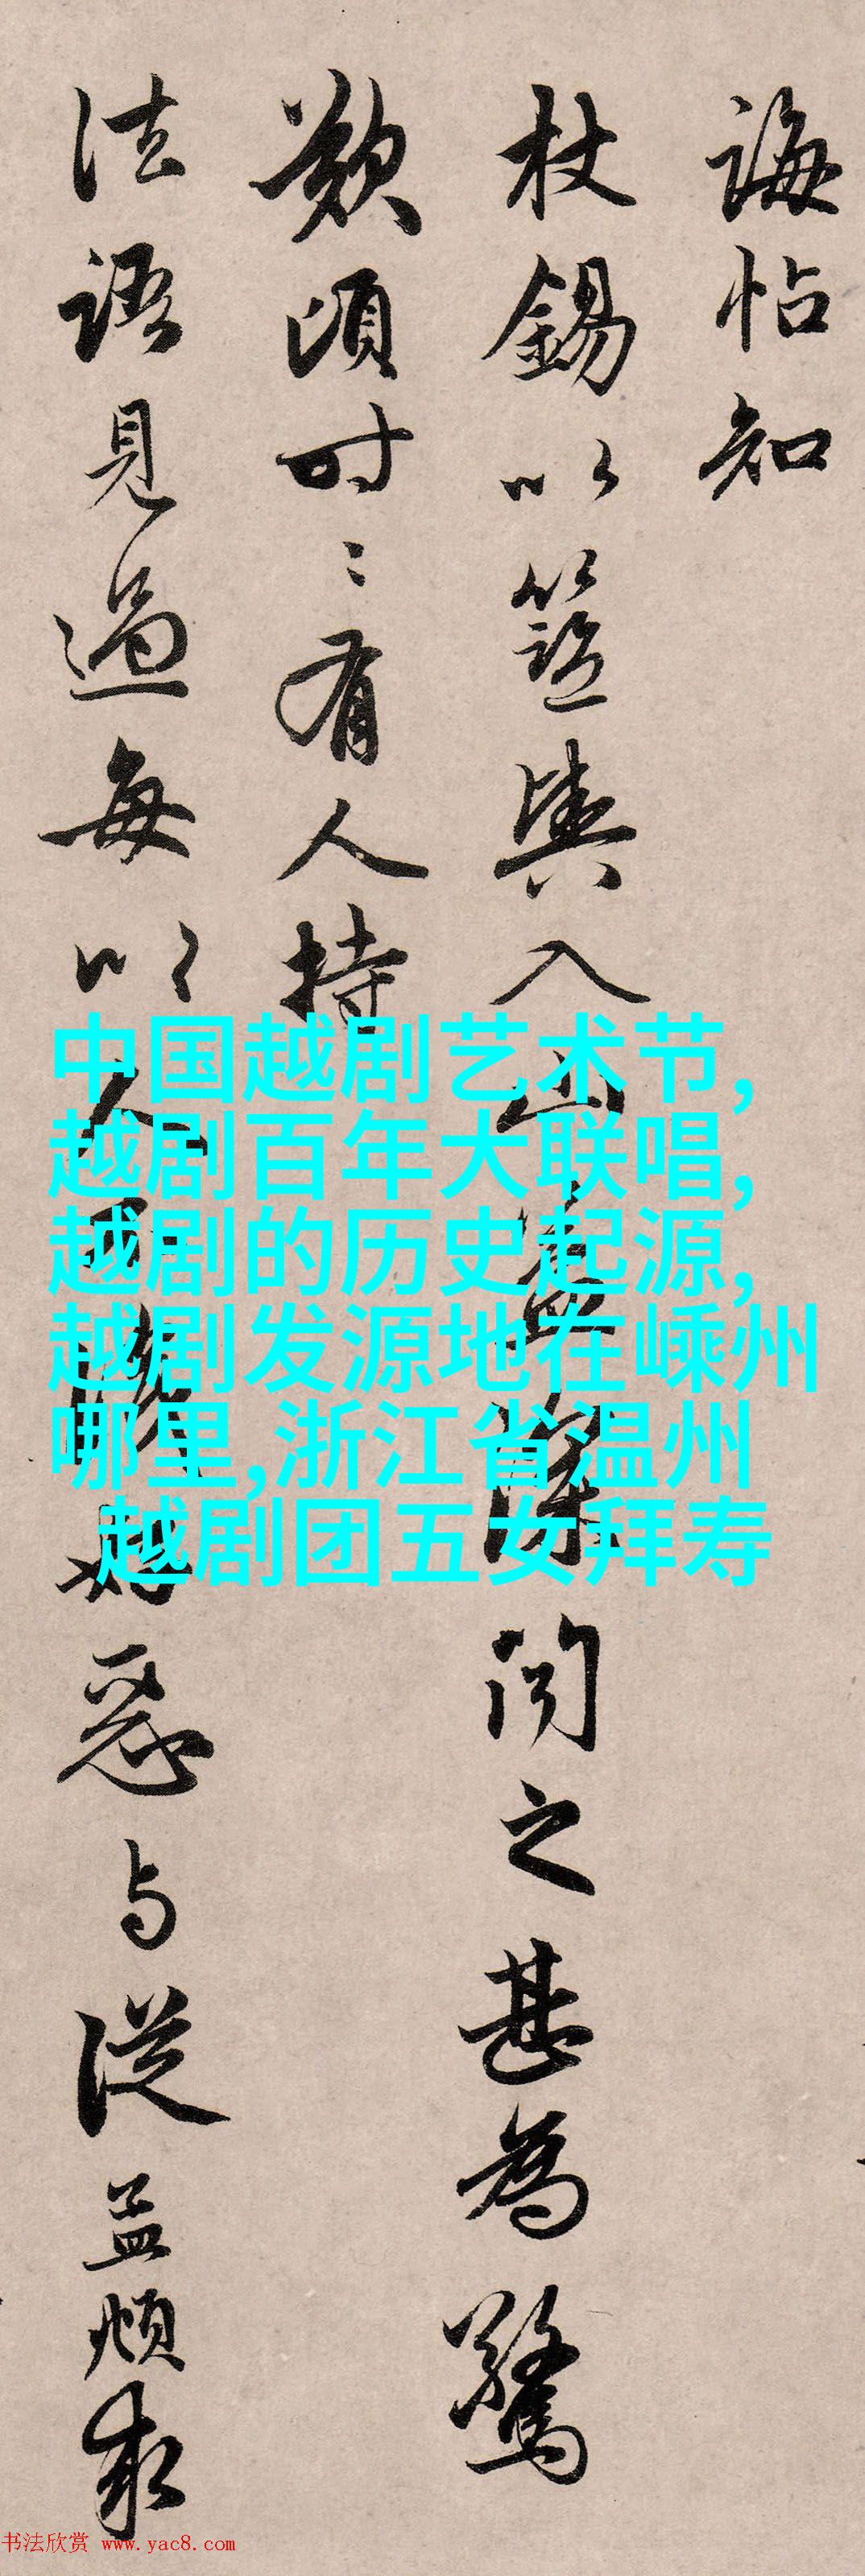 诲帖知
杖锡以篮舆入山
深
闻之甚为惊
叹顷时〻有人持
法语见过每以
好恶与从益烦求
中国越剧艺术节,
越剧百年大联唱,
越剧的历史起源,
越剧发源地在嵊州
哪里,浙江省温州
越剧团五女拜寿
书法欣赏 www.yac8.com